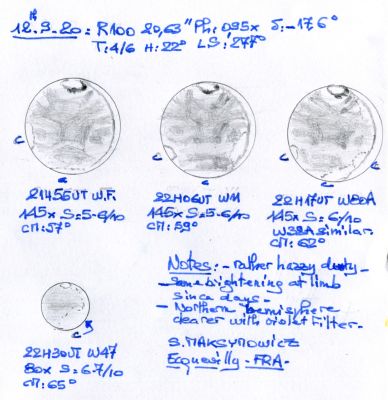 12.9.20 : R100 20,63" Ph: 0.95x δ: -17,6°
T: 4/6 H: 22° LS: 277°
C
C
C
C
C
21H55UT W.F.
145x S=5-6/10
CM: 57°
22H06UT WM
145x S=5-6/10
CM: 59°
22H17UT W80A
145x S: 6/10
W38A similar.
CM: 62°
Notes: - rather hazzy dusty
- some brightening at limb
since days.
- Northern hemisphere
clearer with violet Filter.
S. MAKSYMOWICZ
Ecquevilly - FRA -
22H30UT W47
80x S: 6-7/10
CM: 65°